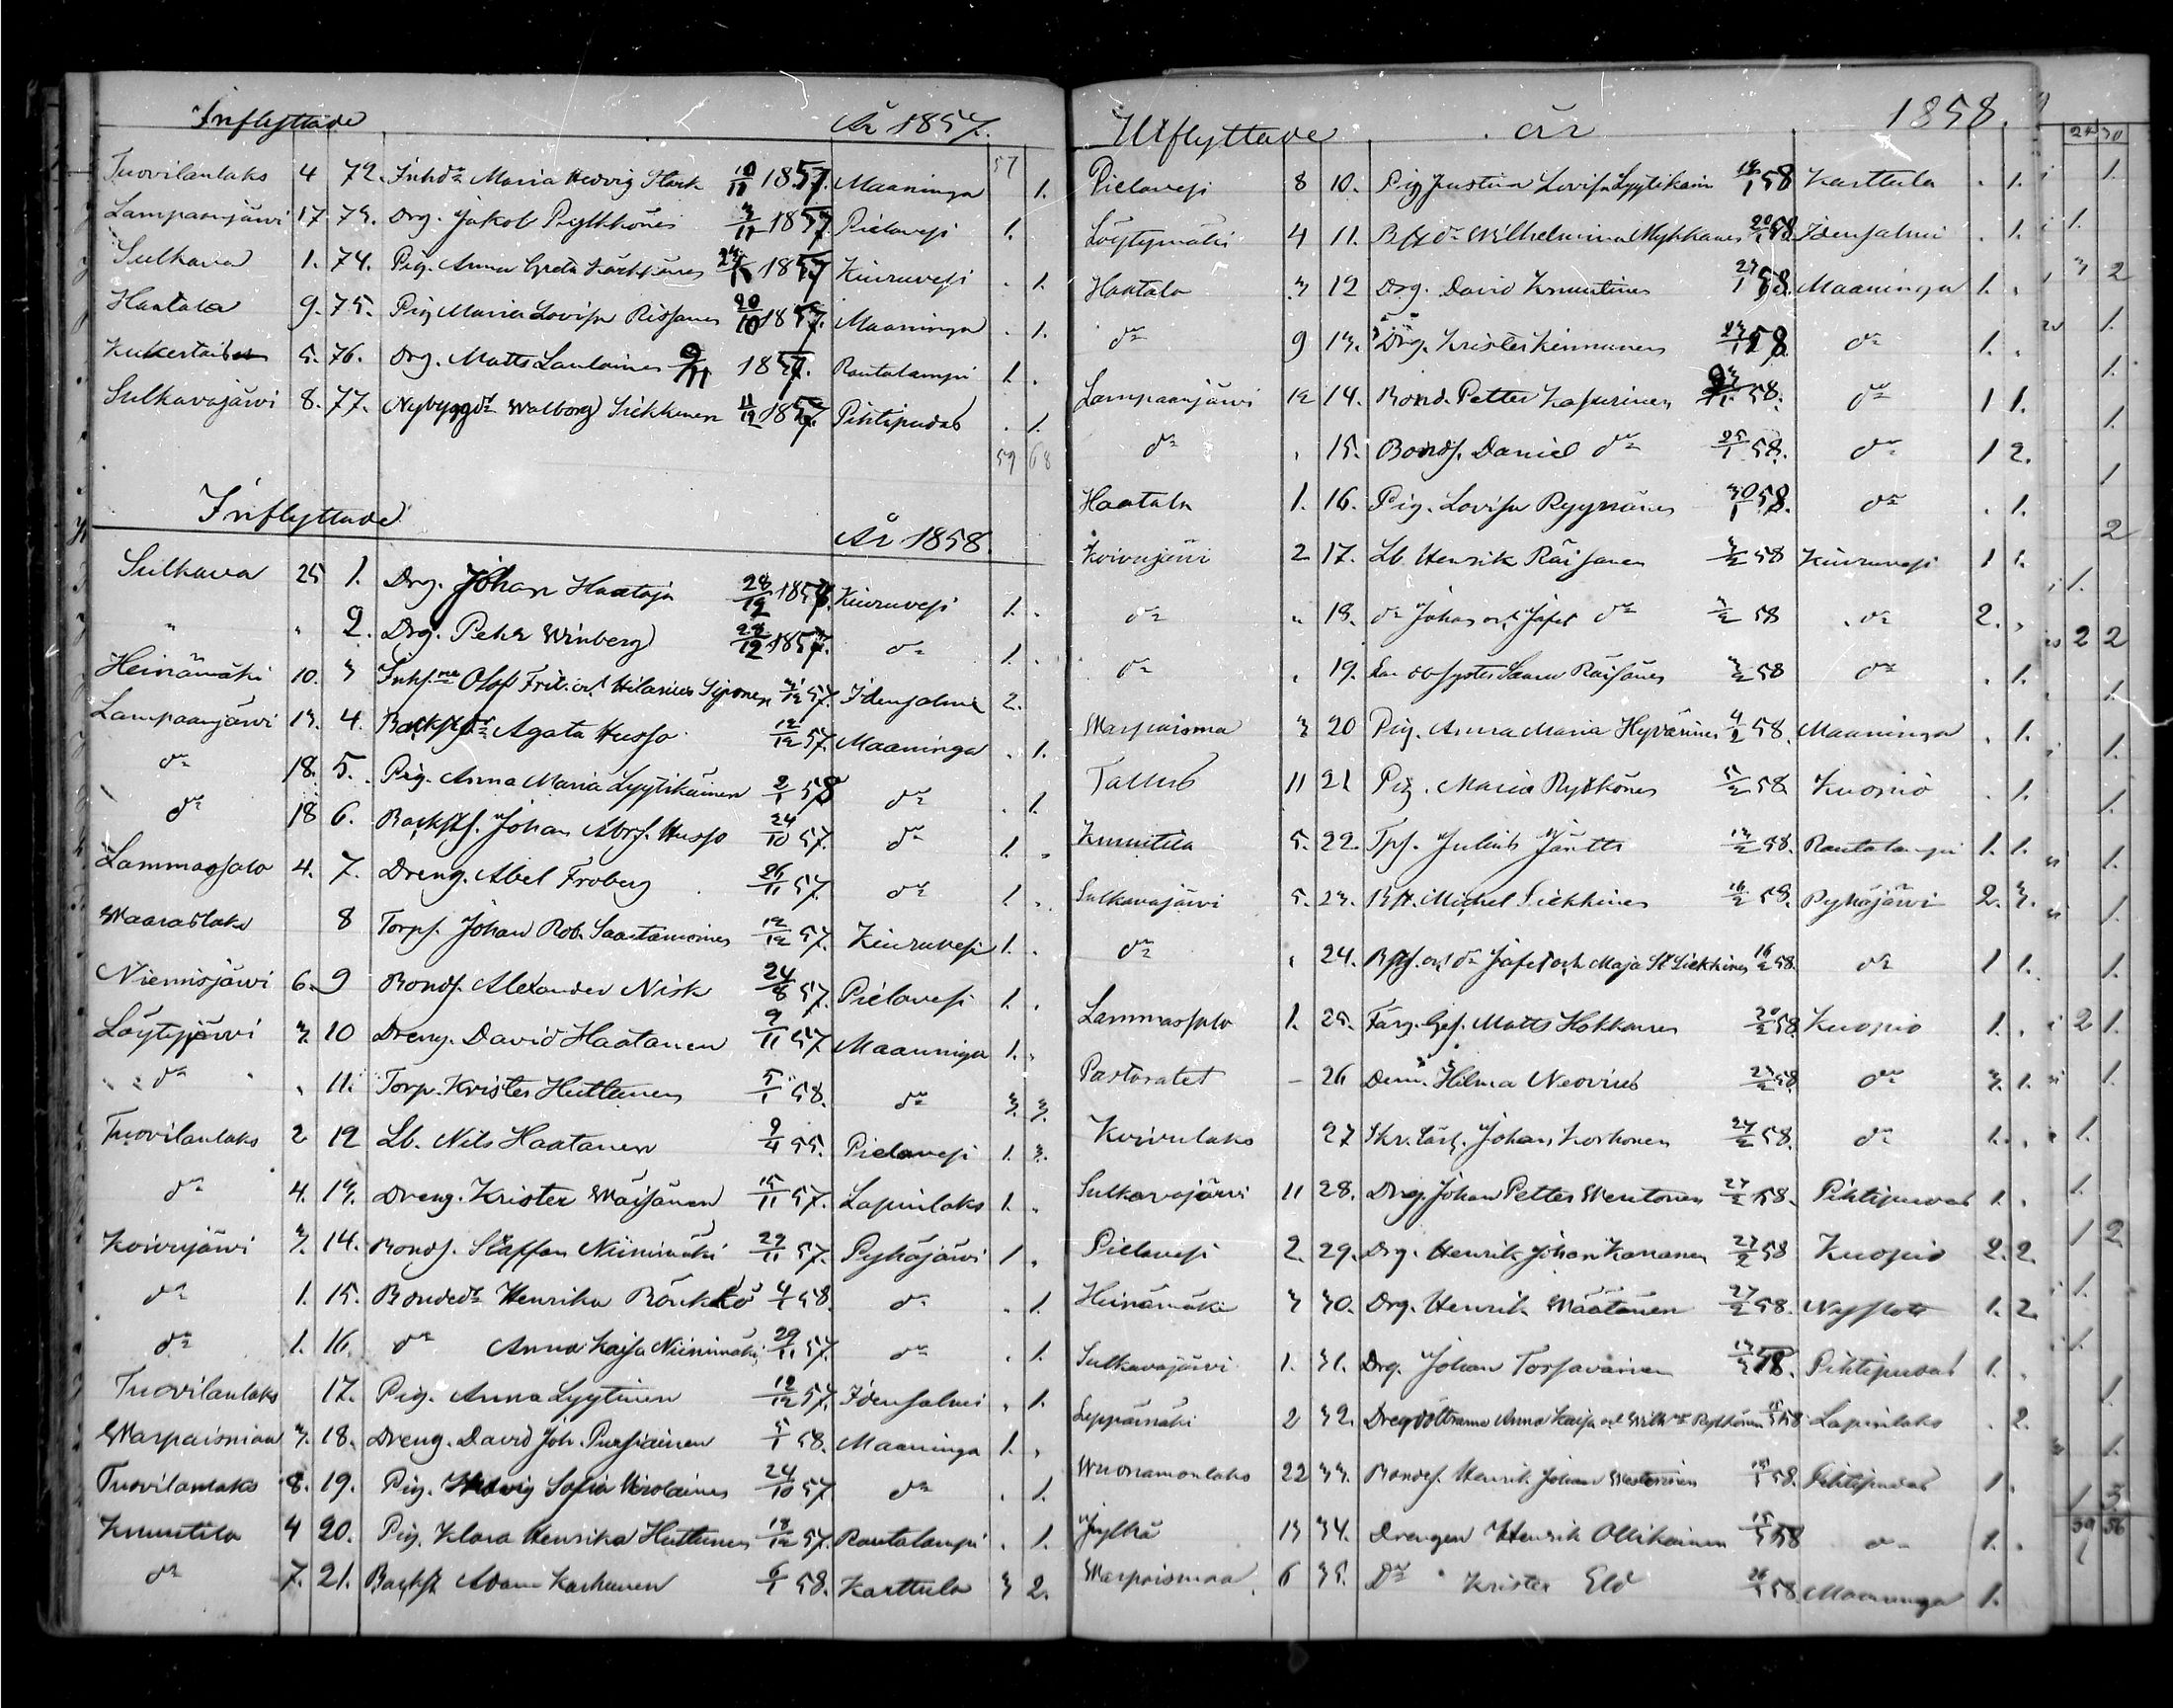 Inflyttade År 1857.
57
Tuovilanlaks 4 72. Inhdr Maria Hedvig Stark 10/11 1857. Maaninga 1.
Lampaanjärvi 17. 73. Drg. Jakob Pylkkönen 3/11 1857. Pielavesi 1.
Sulkava 1. 74. Pig. Anna Greta Kärkkäinen 1857 Kiuruvesi . 1.
Haatala 9. 75. Pig Maria Lovisa Rissanen 20/10 1857. Maaninga . 1.
5. 76. Drg. Matts Laulainen 9/11 1857. Rautalampi 1 .
Sulkavajärvi 8. 77. Nybyggdr Walborg Siekkinen 11/12 1857. Pihtipudas . 1.
59 68
Inflyttade År 1858.
Sulkava 25 1. Drg. Johan Haataja 28/12 1857. Kiuruvesi 1. .
" . 2. Drg. Pehr Winberg 28/12 1857. do 1. .
Heinämäki 10. 3 Olof Frid. och Hilarius Siponen 57. Idensalmi 2.
Lampaanjärvi 13. 4. Agata Husso 12/12 57. Maaninga . 1.
do 18. 5. Pig. Anna Maria Lyytikäinen 2/1 58 do . 1.
do 18 6. Backsts. Johan Abrs. Husso 24/10 57. do 1. .
Lammassalo 4. 7. Dreng. Abel Froberg 26/11 57. do 1. .
Waaraslaks 8 Torps. Johan Rob. Saastamoinen 12/12 57. Kiuruvesi 1. .
Niemisjärvi 6. 9 Bonds. Alexander Nisk 24/8 57. Pielavesi 1. .
Löytyjärvi 3. 10 Dreng. David Haatanen 9/11 57. Maaninga 1. .
do . 11. Torp. Krister Huttunen 5/1 58. do 3. 3.
Tuovilanlaks 2 12 Lb. Nils Haatanen 9/4 55. Pielavesi 1. 3.
do 4. 13. Dreng. Krister Wäisänen 15/11 57. Lapinlaks 1. .
Koivujärvi 3. 14. Bonds. Staffan Niinimäki 29/11 57. Pyhäjärvi 1 .
do 1. 15. Bondedr Henrika Rönkkö 4/1 58. do . 1.
do 1. 16. do Anna Kaisa Niinimäki 29/11 57. do . 1.
Tuovilanlaks 17. Pig. Anna Lyytinen 12/12 57. Idensalmi . 1.
Warpaismaa 3. 18. Dreng. David Joh. Pursiainen 5/1 58. Maaninga 1. .
Tuovilanlaks 8. 19. Pig. Hedvig Sofia Wirolainen 24/10 57 do . 1.
Knuutila 4 20. Pig. Klara Henrika Huttunen 18/12 57. Rautalampi . 1.
do 7. 21. Backst Adam Karhunen 6/1 58. Karttula 3 2.
Utflyttade år 1858.
Pielavesi 8 10. Pig Justina Lovisa Lyytikäin 58 Karttula . 1.
Löytymäki 4 11. Wilhelmina Nykkänen 20/1 58. Idensalmi . 1.
Haatala 3 12 Drg. David Knuutinen 23/1 58. Maaninga 1. .
do 9 13. Drg. Krister Kinnunen 23/1 58. do 1. .
Lampaanjärvi 12 14. Bond. Petter Kasurinen 58. do 1 1.
do . 15. Bonds. Daniel do 25/1 58. do 1 2.
Haatala 1. 16. Pig. Lovisa Ryynänen 30/1 58. do . 1.
Koivujärvi 2 17. Lb Henrik Räisänen 3/2 58 Kiuruvesi 1 1.
do " 18. do Johan och Jafet do 3/2 58 do 2. .
do . 19. syster Räisänen 3/2 58 do . 1.
Warpaisma 3 20 Pig. Anna Maria Hyvärinen 4/2 58. Maaninga . 1.
Tallus 11 21 Pig. Maria Rytkönen 5/2 58. Kuopio . 1.
Knuutila 5. 22. Tps. Julius Jäntti 13/2 58. Rautalampi 1. 1.
Sulkavajärvi 5. 23. Bst. Michel Siekkinen 16/2 58. Pyhäjärvi 2. 3.
do . 24. Jafet och Maja St Siekkinen 16/2 58. do 1 1.
Lammassalo 1. 25. Färg. Ges. Matts Hokkanen 20/2 58. Kuopio 1. .
Pastoratet - 26 Dem. Hilma Neovius 23/2 58 do 3. 1.
Koivulaks 27 Skr. lärl. Johan Korhonen 27/2 58. do 1. .
Sulkavajärvi 11 28. Drg. Johan Petter Wentonen 27/2 58. Pihtipudas 1. .
Pielavesi 2. 29. Drg. Henrik Johan Karanen 27/2 58 Kuopio 2. 2.
Heinämäki 3 30. Drg. Henrik Määtänen 27/2 58. Nyslott 1. 2.
Sulkavajärvi 1. 31. Drg. Johan Torsavainen 13/3 58. Pihtipudas 1. .
Leppämäki 2 32. Anna Kaisa och Wilh. Rytkönen 58 Lapinlaks . 2.
Wuonamonlaks 22 33. Bondes. Henrik Johan 58. Pihtipudas 1 .
Jylhä 13 34. Drengen Henrik Ollikainen 58 do 1. .
Warpaismaa 6 35. Do Krister Eld 58 Maaninga 1.